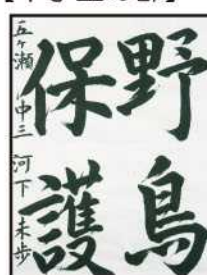 野鳥
保護
五ヶ瀬 中三 河下 未歩